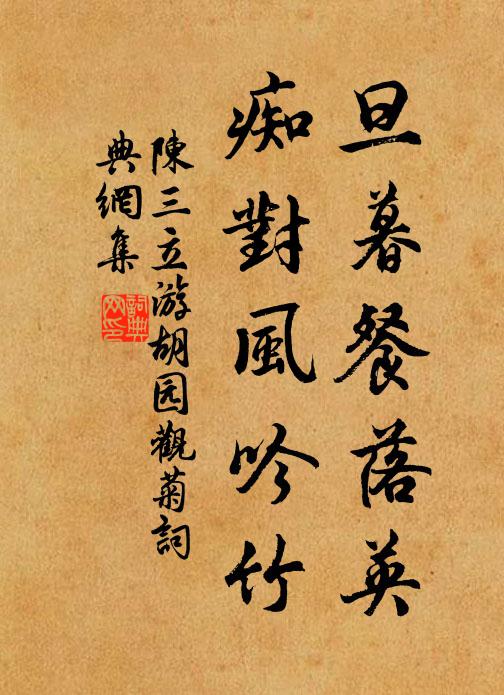 旦暮餐落英
痴對風吟竹
陳三立游胡园觀菊詞
典網集
詞典
网印